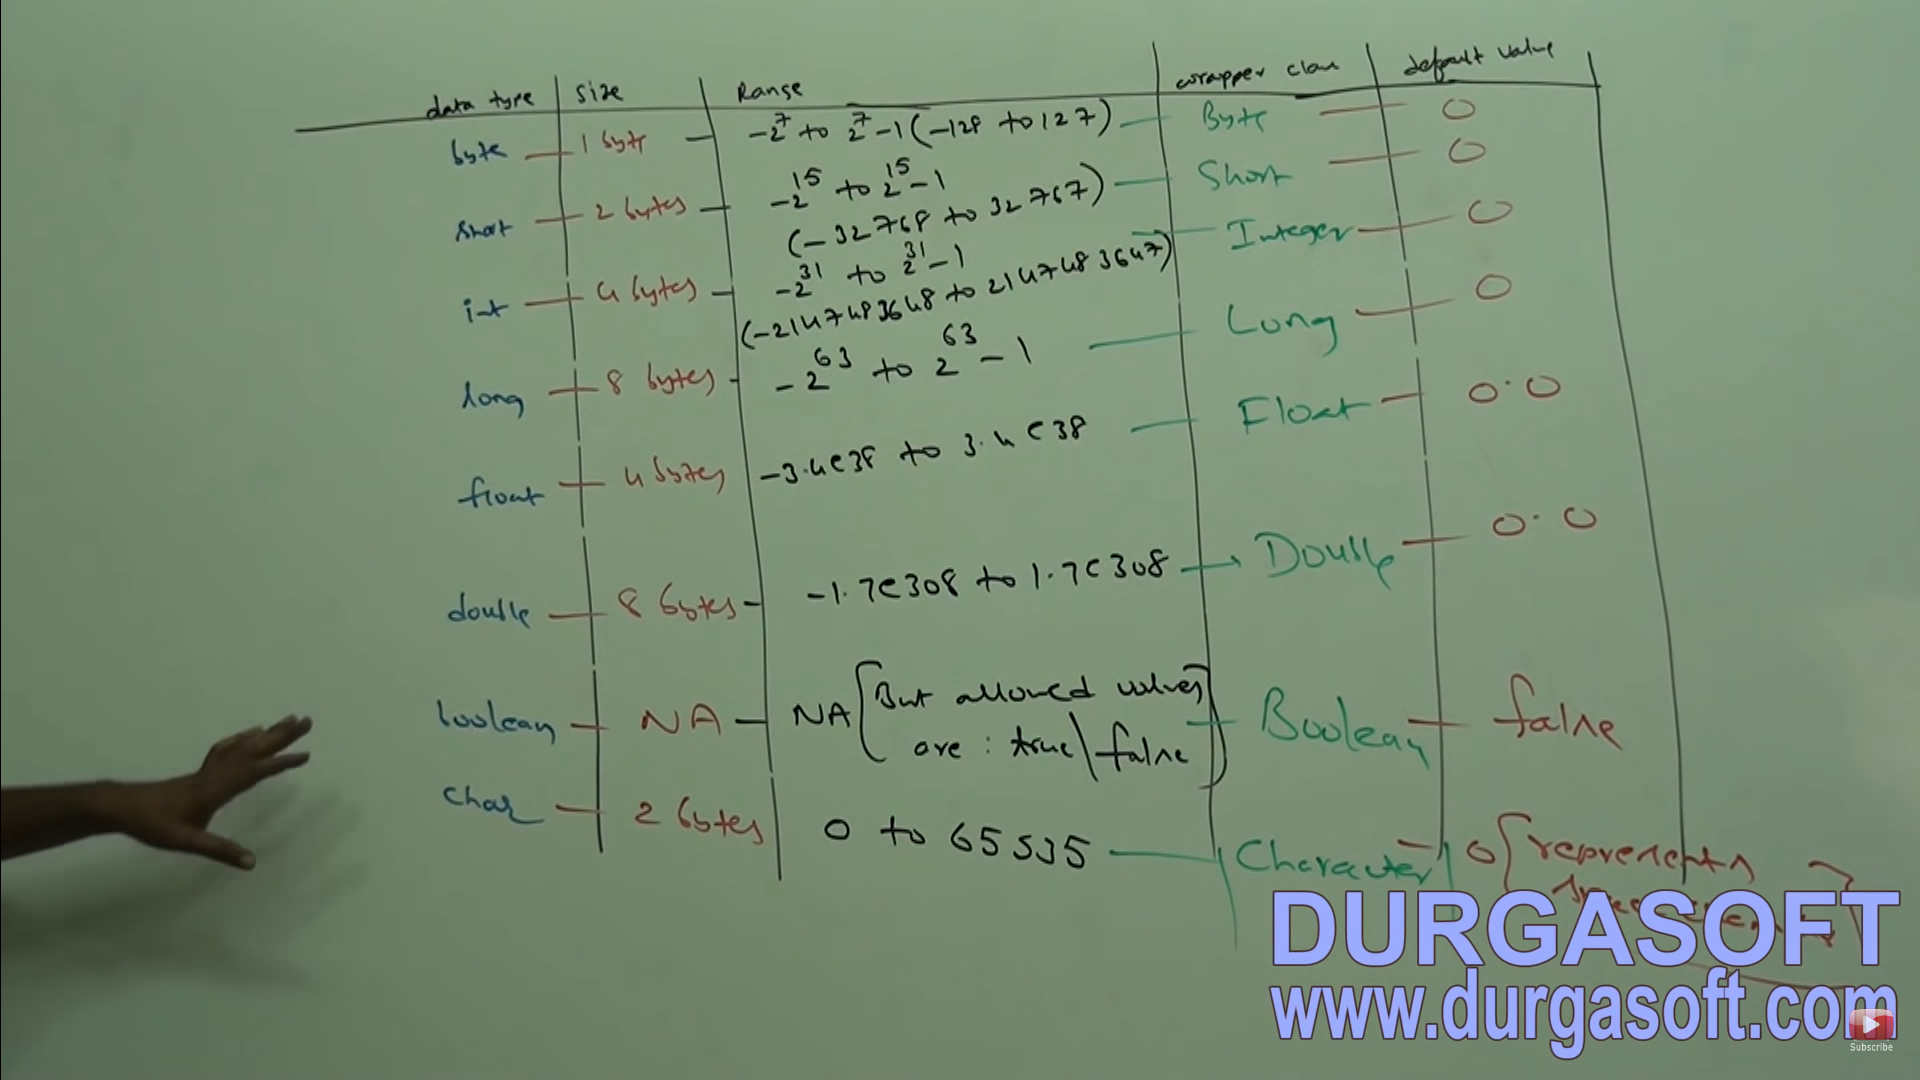 data type size Range wrapper class default value
byte 1 byte -2^7 to 2^7-1 (-128 to 127) Byte 0
short 2 bytes -2^15 to 2^15-1 Short 0
(-32768 to 32767)
int 4 bytes -2^31 to 2^31-1 Integer 0
(-2147483648 to 2147483647)
long 8 bytes -2^63 to 2^63-1 Long 0
float 4 bytes -3.4e38 to 3.4e38 Float 0.0
double 8 bytes -1.7e308 to 1.7e308 Double 0.0
boolean NA NA [But allowed values Boolean false
are: true\false]
char 2 bytes 0 to 65535 Character 0 [represents
DURGASOFT
www.durgasoft.com
Subscribe